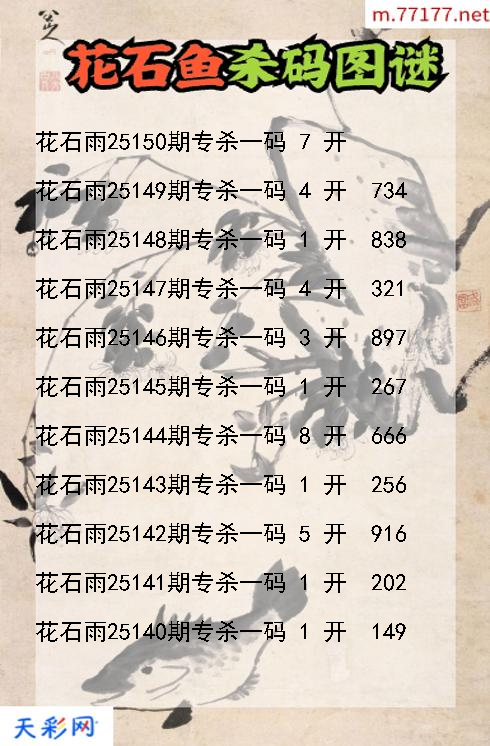 m.77177.net
花石鱼杀码图谜
花石雨25150期专杀一码 7 开
花石雨25149期专杀一码 4 开 734
花石雨25148期专杀一码 1 开 838
花石雨25147期专杀一码 4 开 321
花石雨25146期专杀一码 3 开 897
花石雨25145期专杀一码 1 开 267
花石雨25144期专杀一码 8 开 666
花石雨25143期专杀一码 1 开 256
花石雨25142期专杀一码 5 开 916
花石雨25141期专杀一码 1 开 202
花石雨25140期专杀一码 1 开 149
天彩网